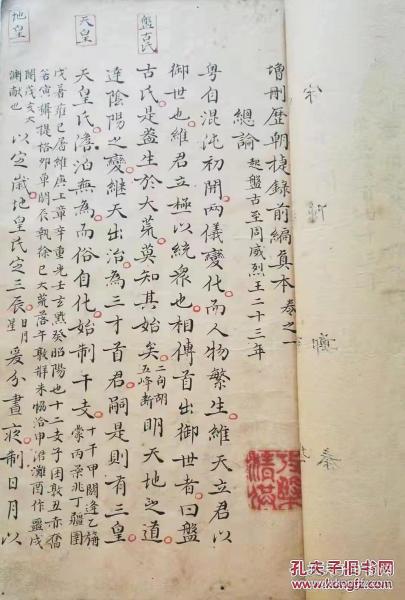 增刪歷朝捷錄前編真本卷之一
總論 起盤古至周威烈王二十三年
粵自混沌初開兩儀變化而人物繁生維天立君以
御世也維君立極以統衆也相傳首出御世者曰盤
古氏是盖生於大荒莫知其始矣 二句胡五峰斷 明天地之道
達陰陽之變継天出治為三才首君嗣是則有三皇
天皇氏澹泊無為而俗自化始制干支 十干甲閼逢乙旃蒙丙柔兆丁疆圉
戊著雍己居維庚上章辛重光壬玄黓癸昭陽也十二支子困敦丑赤奮
若寅攝提格卯單閼辰執徐巳大荒落午敦牂未協洽申涒灘酉作噩戌
閹茂亥大淵獻也 以定歲地皇氏定三辰 日月星 爰分晝夜制日月以
盤古氏
天皇
地皇
秦
孔夫子旧书网